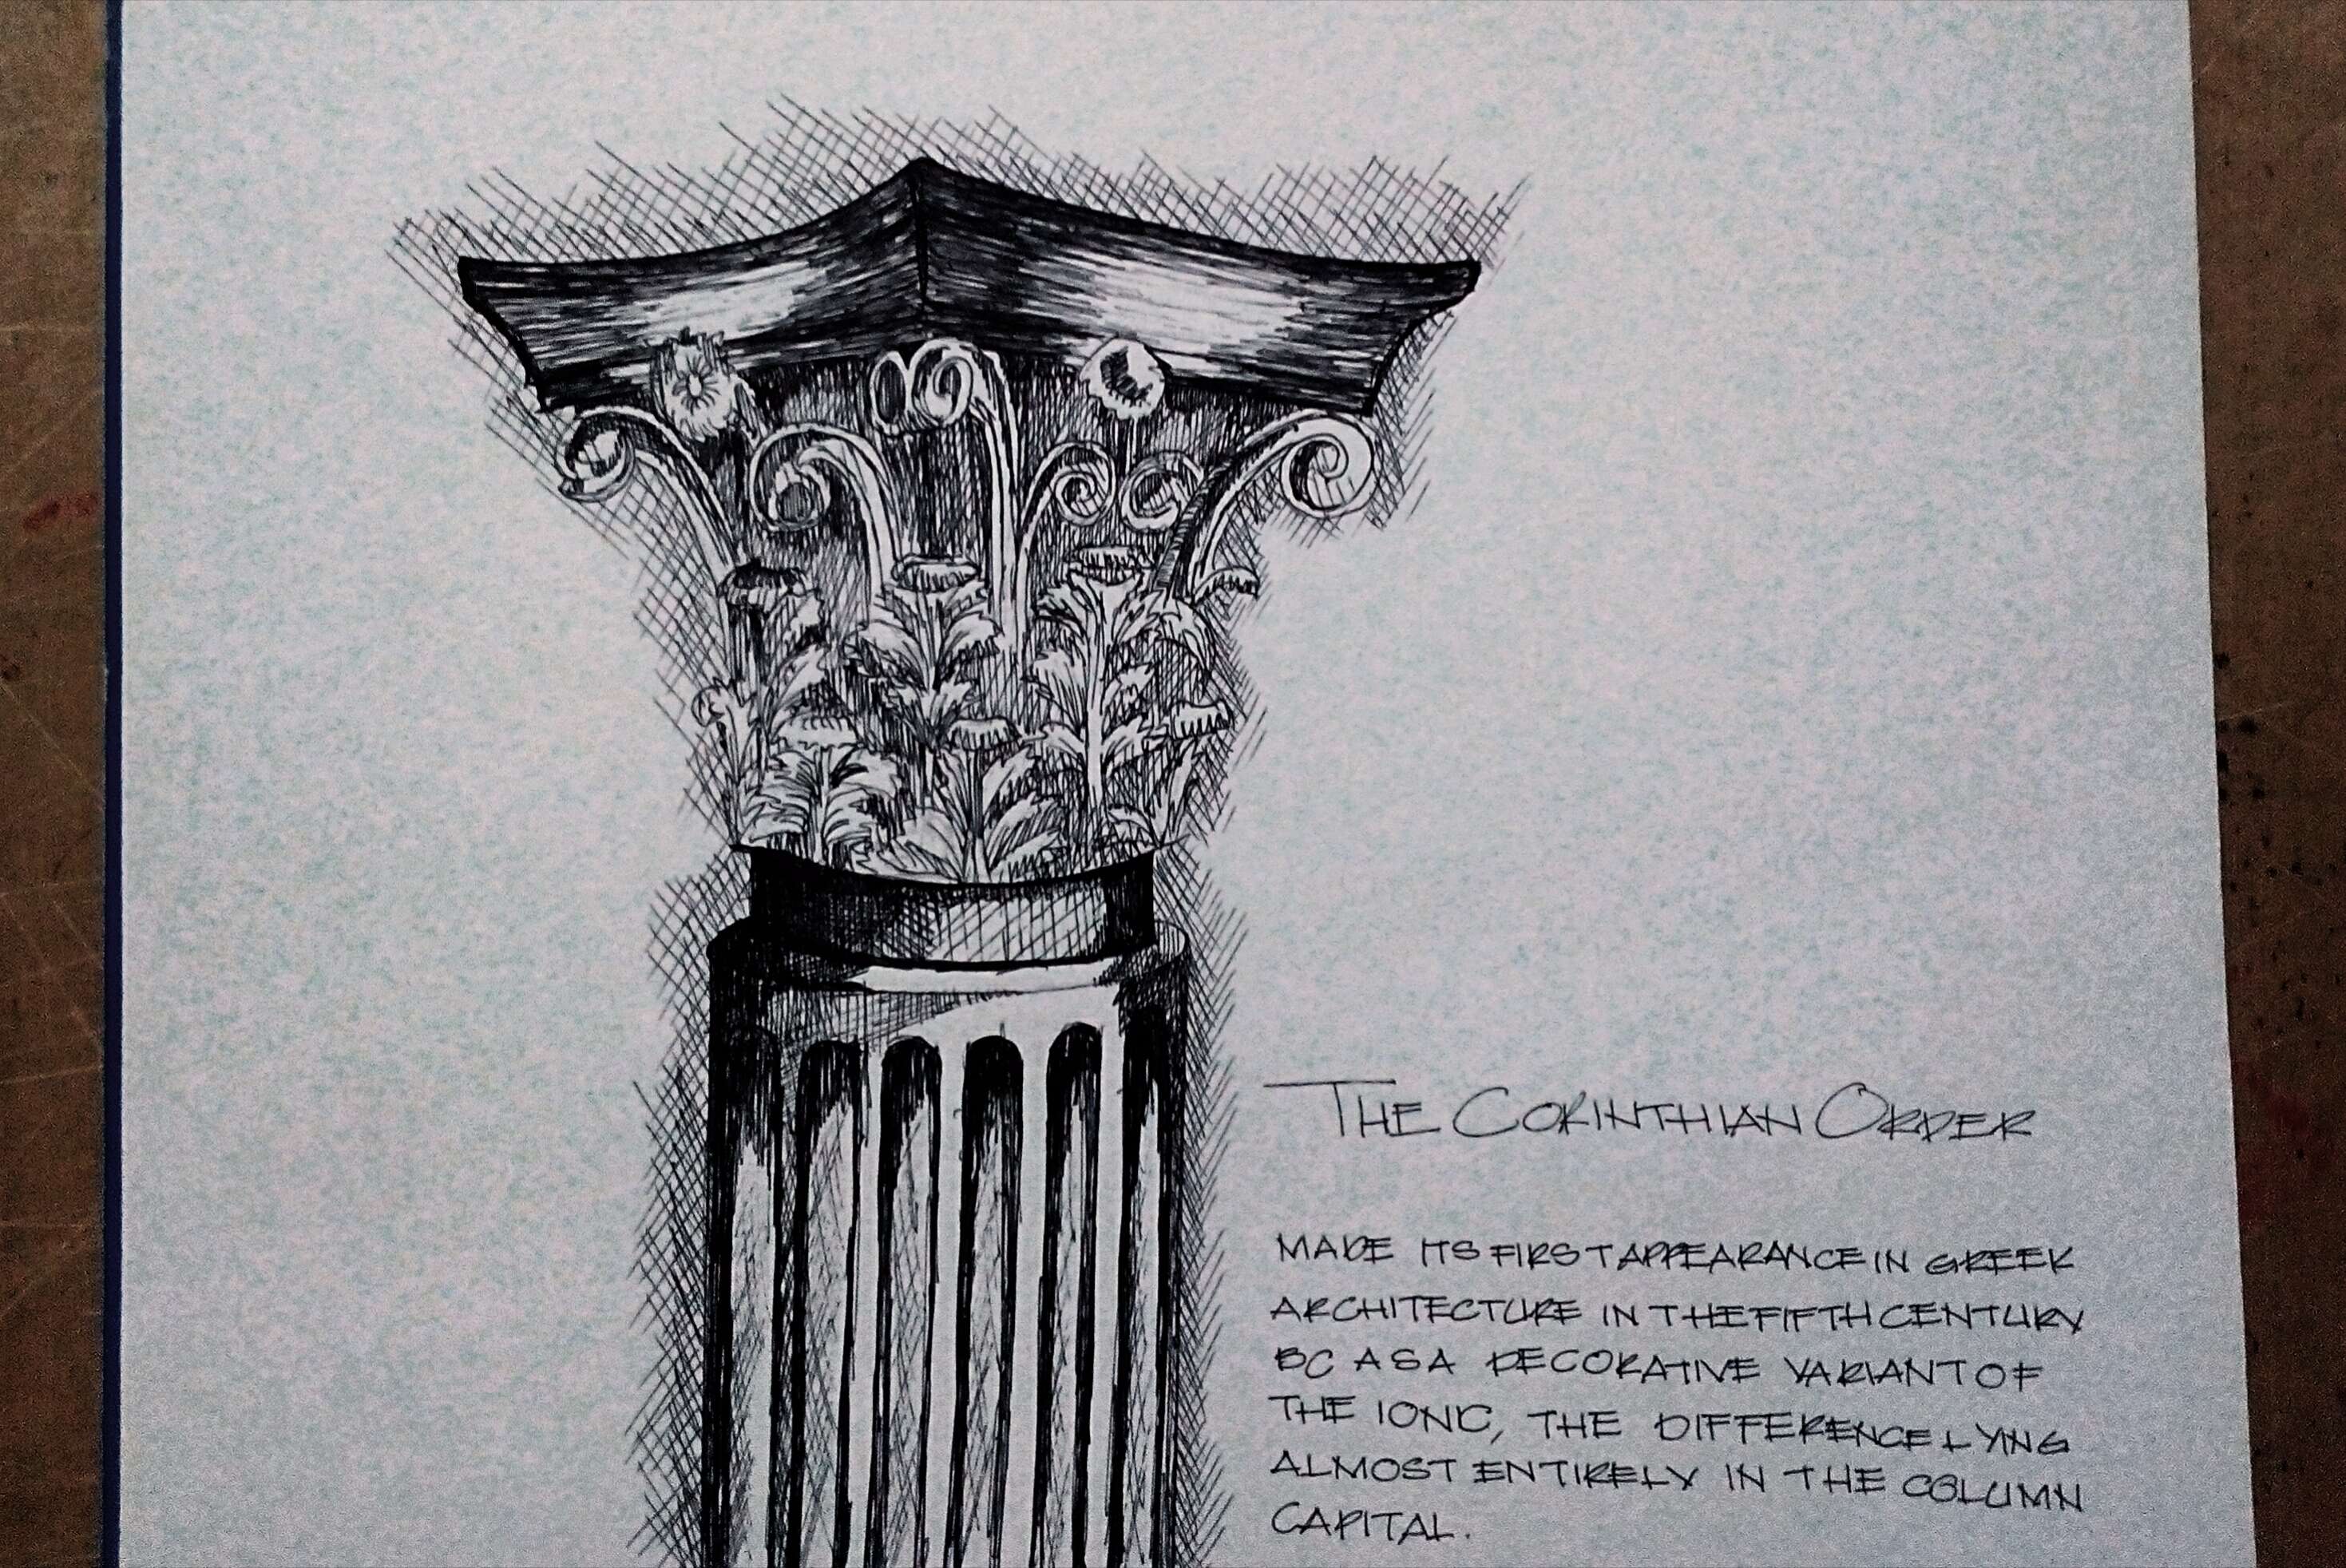 THE CORINTHIAN ORDER
MADE ITS FIRST APPEARANCE IN GREEK
ARCHITECTURE IN THE FIFTH CENTURY
BC AS A DECORATIVE VARIANT OF
THE IONIC, THE DIFFERENCE LYING
ALMOST ENTIRELY IN THE COLUMN
CAPITAL.